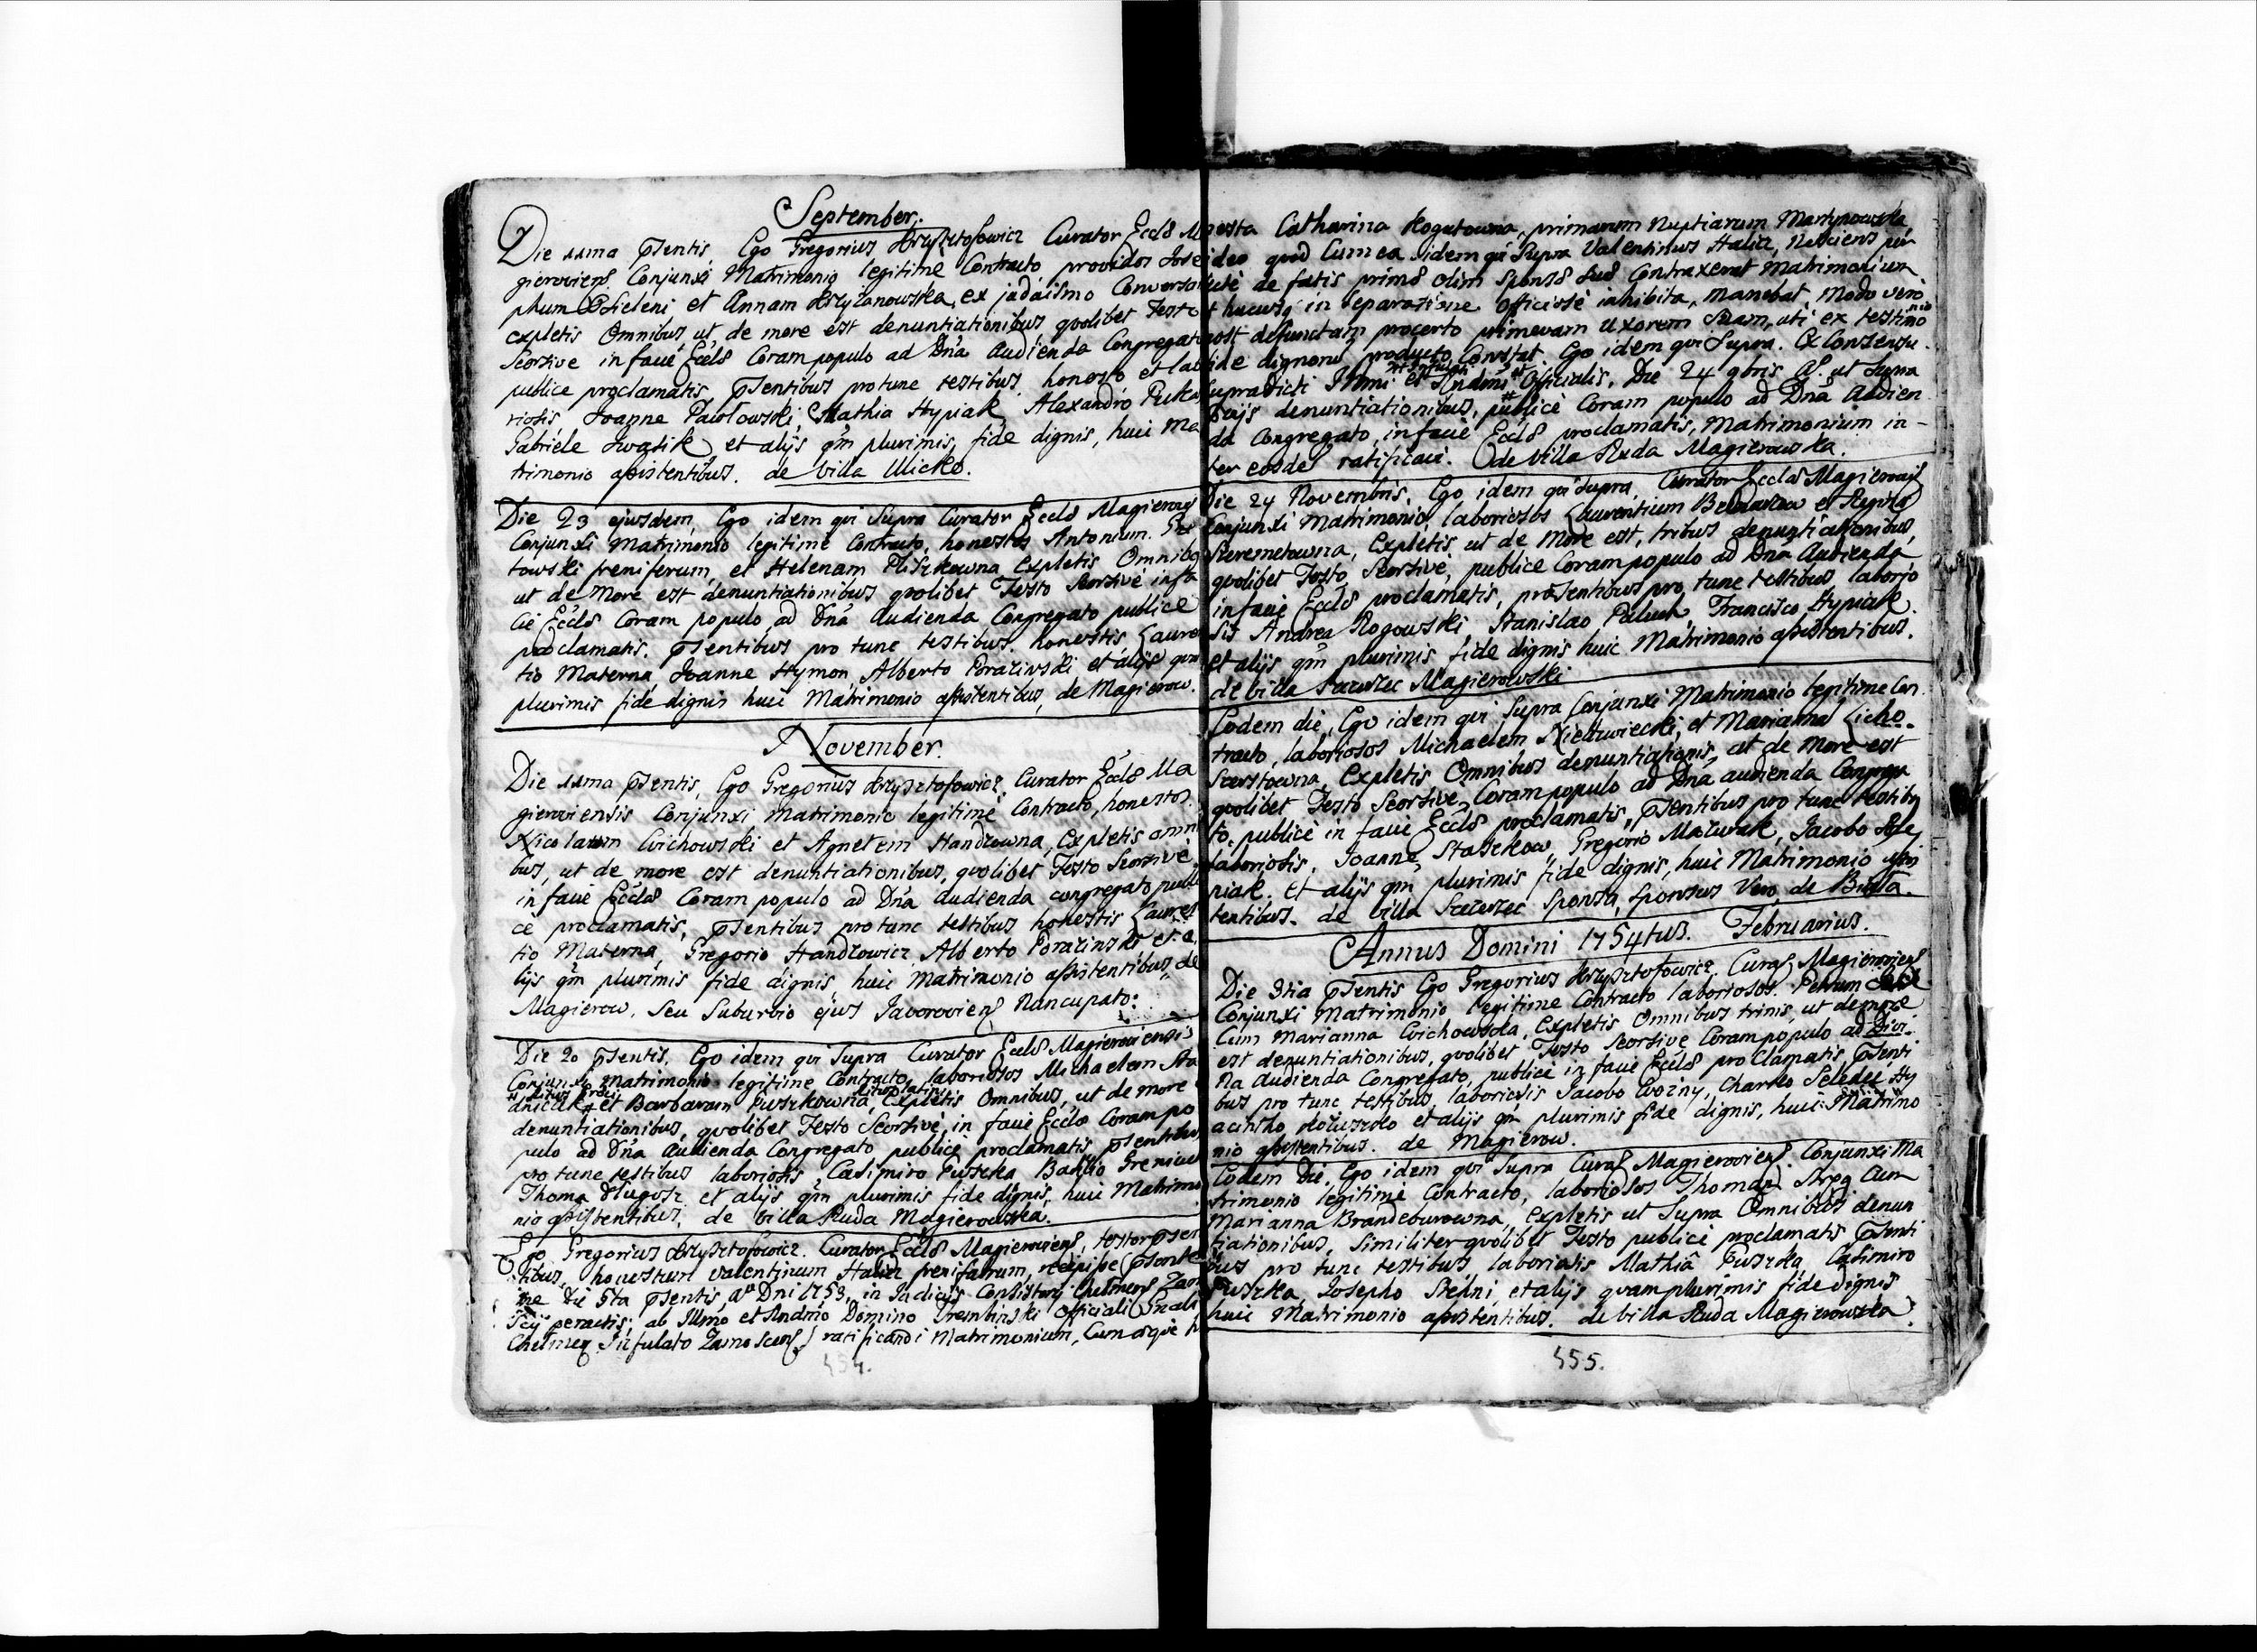 September.
Die 11ma psentis, Ego Gregorius Krzysztofowicz Curator Eccls Ma
gieroviens. Conjunxi Matrimonio legitime Contracto, providos Jose
phum Osieleni et Annam Krzyżanowska, ex judaismo Conversa
expletis Omnibus, ut, de more est denuntiationibus quolibet Festo
Seorsive in facie Eccls Coram populo ad Dna audienda Congregato
publice proclamatis psentibus pro tunc testibus, honesto et labo
riosis, Joanne Pawłowski, Mathia Hypiak Alexandro Puka
Gabriele Iwasik et alijs qm plurimis, fide dignis, huic Ma
trimonio assistentibus. de Villa Ulicko.
Die 23 ejusdem, Ego idem qui Supra Curator Eccls Magierovs
Conjunxi Matrimonio legitime Contracto, honestos Antonium
towski freniferum, et Helenam Pliszkowna Expletis Omnibs
ut de More est denuntiationibus quolibet Festo Seorsive in fa
cie Eccls Coram populo ad Dna Audienda Congregato publice
proclamatis. psentibus pro tunc testibus. honestis Lauren
tio Materna Joanne Hymon, Alberto Porazinski et alijs qm
plurimis fide dignis huic Matrimonio assistentibus, de Magierow.
November.
Die 11ma psentis, Ego Gregorius Krzysztofowicz. Curator Eccls Ma
gieroviensis Conjunxi Matrimonio legitime Contracto, honestos
Nicolaum Cichowski et Agnetem Handzowna, Expletis omni
bus, ut de more est denuntiationibus, quolibet Festo Seorsive
in facie Eccls Coram populo ad Dna Audienda congregato publi
ce proclamatis, psentibus pro tunc testibus honestis Lauren
tio Materna, Gregorio Handzowicz, Alberto Porazinski et a
lijs qm plurimis fide dignis, huic Matrimonio assistentibus, de
Magierow, Seu Suburbio ejus Javoroviens Nuncupato:
Die 20 psentis, Ego idem qui Supra Curator Eccls Magieroviensis
Conjunxi Matrimonio legitime Contracto, laboriosos Michaelem
et Barbaram Puszkowna, Expletis Omnibus, ut de more
denuntiationibus, quolibet Festo Seorsive, in facie Eccls Coram po
pulo ad Dna Audienda Congregato publice proclamatis, psentibus
pro tunc testibus laboriosis, Casimiro Puszka, Basilio
Thoma Długosz et alijs qm plurimis fide dignis, huic Matrimo
nio assistentibus, de Villa Ruda Magierowska.
Ego Gregorius Krzysztofowicz. Curator Eccls Magieroviens, testor psen
tibus, honestum Valentinum Halicz frenifatrum, recepisse
me Die 5ta psentis, Ao Dni 1753, in Judicijs Consistory Chelmens
peractis, ab Illmo et Rndmo Domino Trembinski Officiali
Chelmen Infulato Zamoscens ratificandi Matrimonium, Cum
454.
nesta Catharina Rogutowna, primarum Nuptiarum Martynowska
ideo quod Cum ea idem qui Supra Valentinus Halicz, Nesciens per
de fatis primo olim Sponso Suo Contraxerat Matrimonium
t hucusq in separatione Officiose inhibita, manebat, Modo vero
post defunctam procerto primevam Uxorem Suam, uti ex testimo nio
fide dignorum producto Constat. Ego idem qui Supra. Ex Consensu
Supradicti Illmi et Rndmi Officialis, Die 24 9bris A. ut Supra
denuntiationibus, publice Coram populo ad Dna Audien
da Congregato, in facie Eccls proclamatis, Matrimonium in-
ter eosde ratificavi. de Villa Ruda Magierowska.
Die 24 Novembris, Ego idem qui Supra Curator Eccls Magierovs
Conjunxi Matrimonio, laboriosos Laurentium et
Szeremetowna, Expletis, ut de More est, tribus denuntiationibus,
quolibet Festo Seorsive, publice Coram populo ad Dna Audienda
in facie Eccls proclamatis, psentibus pro tunc testibus laborio
sis Andrea Rogowski, Stanislao Paluch, Francisco Hypiak
et alijs qm plurimis fide dignis huic Matrimonio assistentibus.
de Villa Szczerzec Magierowski
Eodem die, Ego idem qui Supra Conjunxi Matrimonio legitime Con
tracto, laboriosos Michaelem Niedzwiecki, et Marianna Licho-
Expletis Omnibus denuntiationis, ut de More est
quolibet Festo Seorsive, Coram populo ad Dna audienda Congrega
to publice in facie Eccls proclamatis, psentibus pro tunc testibs
laboriosis, Joanne Staszkow, Gregorio Mazurak, Jacobo
niak. et alijs qm plurimis fide dignis, huic Matrimonio assis
tentibus. de Villa Szczerzec Sponsa, Sponsus Vero, de
Annus Domini 1754tus. Februarius.
Die 3tia psentis Ego Gregorius Krzysztofowicz. Curas Magieroviens
Conjunxi Matrimonio legitime Contracto laboriosos. Petrum
Cum Marianna Cichowska, Expletis Omnibus trinis, ut de more
est denuntiationibus, quolibet Festo Seorsive Coram populo ad Divi-
na Audienda Congregato, publice in facie Eccls proclamatis, psenti
bus pro tunc testibus, laboriosis Jacobo Woźny, Charko Seledec Hy
acintho et alijs qm plurimis fide dignis, huic Matrimo
nio assistentibus. de Magierow.
Eodem Die, Ego idem qui Supra Curas Magieroviens. Conjunxi Ma
trimonio legitime Contracto, laboriosos Thomam Strąg Cum
Marianna Brandeburowna, Expletis ut Supra Omnibus denun
tiationibus, Similiter quolibet Festo publice proclamatis psenti
bus pro tunc testibus laboriosis Mathia Puszka, Casimiro
Puszka, Josepho Stelni, et alijs quam plurimis fide dignis
huic Matrimonio assistentibus. de Villa Ruda Magierowska
455.